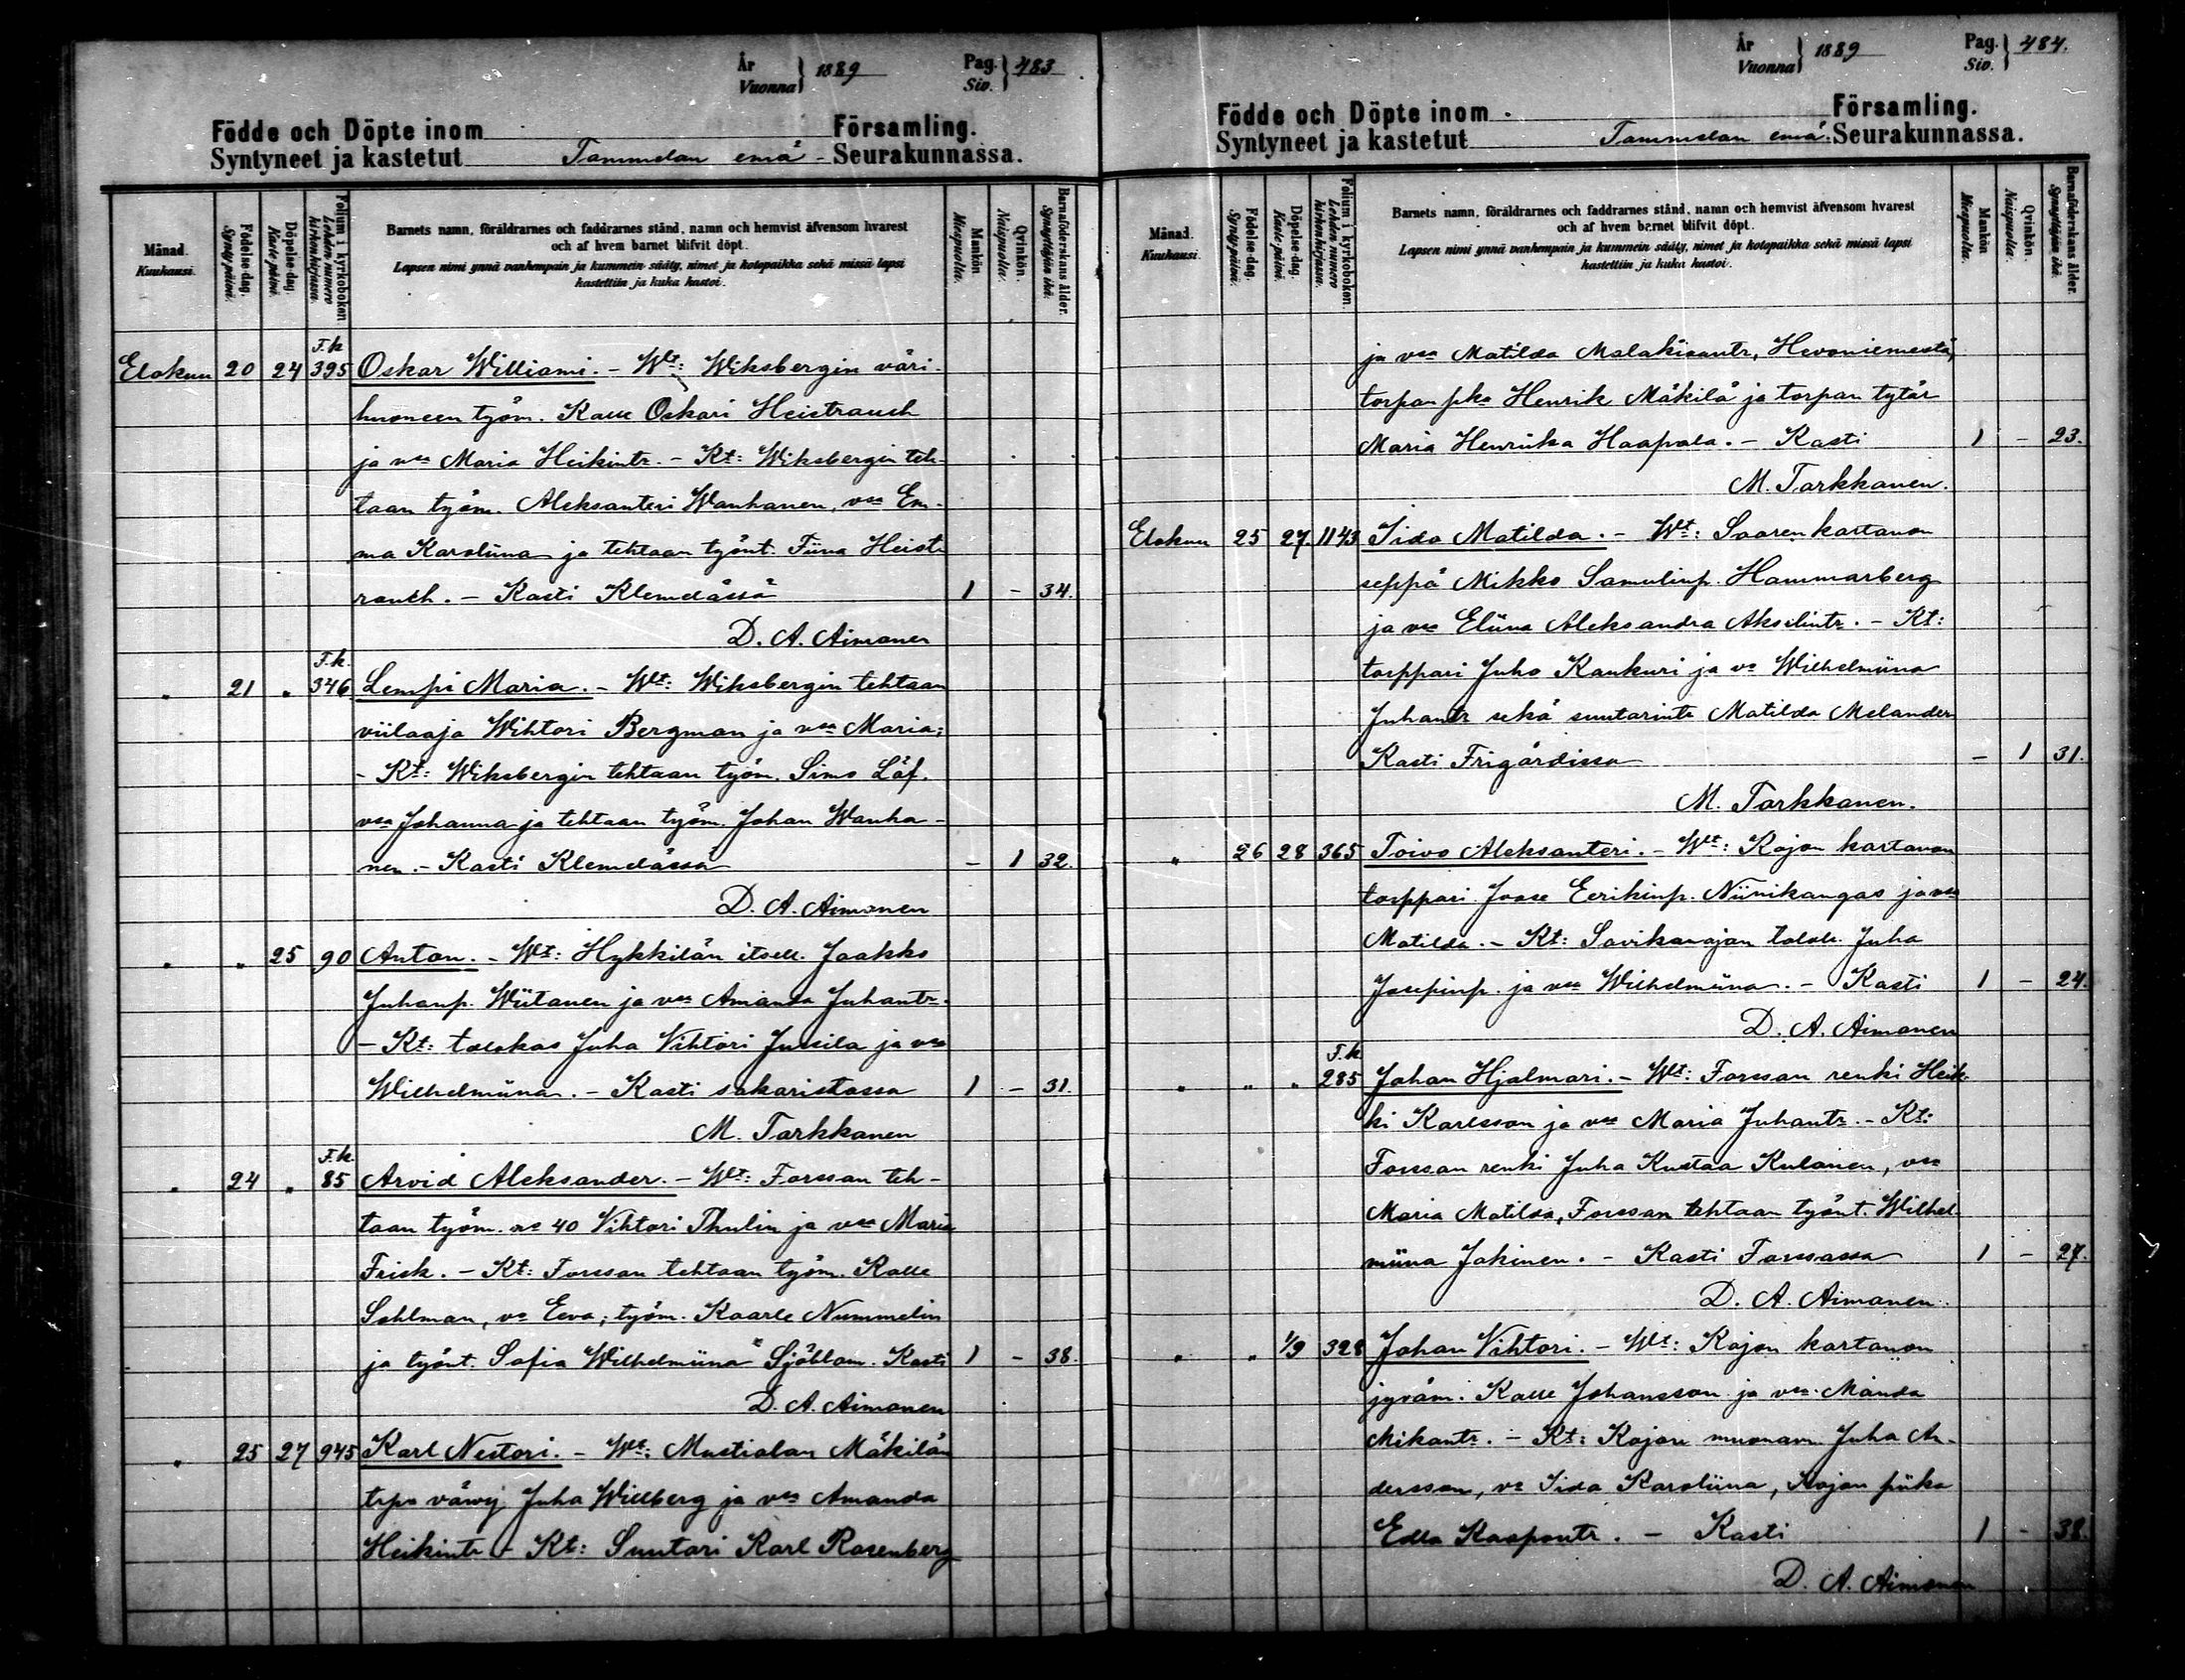 År
Vuonna } 1889 Pag.
Siv. } 483
Födde och Döpte inom Församling.
Syntyneet ja kastetut Tammelan emä - Seurakunnassa.
Månad.
Kuukausi.
Födelse-dag.
Synty-päivä.
Döpelse-dag.
Kaste-päivä.
Folium i kyrkoboken.
Lehden numero kirkonkirjassa.
Barnets namn, föräldrarnes och faddrarnes stånd, namn och hemvist äfvensom hvarest
och af hvem barnet blifvit döpt.
Lapsen nimi ynnä vanhempain ja kummein sääty, nimet ja kotopaikka sekä missä lapsi
kastettiin ja kuka kastoi.
Mankön
Miespuolia.
Qvinkön.
Naispuolia.
Barnaföderskans ålder.
Synnyttäjän ikä.
F.k
Elokuu 20 24 395 Oskar Williami. - Wt: Wiksbergin väri-
huoneen työm. Kalle Oskari Heistrauch
ja vsa Maria Heikintr. - Kt: Wiksbergin teh-
taan työm. Aleksanteri Wanhanen, vsa Em-
ma Karoliina ja tehtaan työnt. Fiina Heist-
rauch. - Kasti Klemelässä 1 - 34.
D. A. Aimonen
F.k.
" 21 " 346 Lempi Maria. - Wt: Wiksbergin tehtaan
viilaaja Wihtori Bergman ja vsa Maria;
- Kt: Wiksbergin tehtaan työm. Simo Löf.
vsa Johanna ja tehtaan työm. Johan Wanha-
nen. - Kasti Klemelässä - 1 32.
D. A. Aimonen
" " 25 90 Anton. - Wt: Hykkilän itsell. Jaakko
Juhanp. Wiitanen ja vsa Amanda Juhantr.
- Kt: talokas Juha Vihtori Jussila ja vsa
Wilhelmiina. - Kasti sakaristossa 1 - 31.
M. Tarkkanen
F.k.
" 24 " 85 Arvid Aleksander. - Wt: Forssan teh-
taan työm. no 40 Vihtori Thulin ja vsa Maria
Frisk. - Kt: Forssan tehtaan työm. Kalle
Sahlman, vs Eeva; työm. Kaarle Nummelin
ja työnt. Sofia Wilhelmiina Sjöblom. Kasti 1 - 38.
D. A. Aimonen
" 25 27 945 Karl Nestori. - Wt: Mustialan Mäkilän
trpn vävy Juha Willberg ja vsa Amanda
Heikintr - Kt: Suutari Karl Rosenberg
År
Vuonna } 1889 Pag.
Siv. } 484.
Födde och Döpte inom Församling.
Syntyneet ja kastetut Tammelan emä. Seurakunnassa.
Månad.
Kuukausi.
Födelse-dag.
Synty-päivä.
Döpelse-dag.
Kaste-päivä.
Folium i kyrkoboken.
Lehden numero kirkonkirjassa.
Barnets namn, föräldrarnes och faddrarnes stånd, namn och hemvist äfvensom hvarest
och af hvem barnet blifvit döpt.
Lapsen nimi ynnä vanhempain ja kummein sääty, nimet ja kotopaikka sekä missä lapsi
kastettiin ja kuka kastoi.
Mankön
Miespuolia.
Qvinkön.
Naispuolia.
Barnaföderskans ålder.
Synnyttäjän ikä.
ja vsa Matilda Malakiantr, Hevoniemestä,
torpan pka Henrik Mäkilä ja torpan tytär
Maria Henrika Haapala. - Kasti 1 - 23.
M. Tarkkanen.
Elokuu 25 27. 1143 Iida Matilda. - Wt: Saaren kartanon
seppä Mikko Samulinp. Hammarberg
ja vsa Eliina Aleksandra Akselintr. - Kt:
torppari Juho Kankuri ja vs Wilhelmiina
Juhantr sekä suutarintr Matilda Melander
Kasti Frigårdissa - 1 31.
M. Tarkkanen.
" 26 28 365 Toivo Aleksanteri. - Wt: Kojon kartanon
torppari Joose Eerikinp. Niinikangas ja vsa
Matilda. - Kt: Savikanojan talok. Juha
Josepinp. ja vsa Wilhelmiina. - Kasti 1 - 24.
D. A. Aimonen
F.k
" " " 285 Johan Hjalmari. - Wt: Forssan renki Heik-
ki Karlsson ja vsa Maria Juhantr. - Kt:
Forssan renki Juha Kustaa Kulonen, vsa
Maria Matilda, Forssan tehtaan työnt. Wilhel-
miina Jokinen. - Kasti Forssassa 1 - 27.
D. A. Aimonen.
" " 1/9 328 Johan Vihtori. - Wt: Kojon kartanon
jyväm. Kalle Johansson ja vsa Manda
Mikontr. - Kt: Kojon muonam. Juha An-
dersson, vs Iida Karoliina, Kojon piika
Edla Kaapontr. - Kasti 1 - 38.
D. A. Aimonen